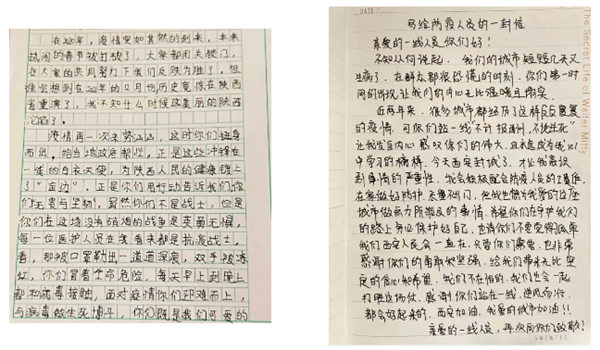 在2020年,疫情突如其然的到来,本来
热闹的春节被打破了,大家都闭关锁门,
在大家的共同努力下我们反败为胜了,但
谁会想到在2021年的12月份历史竟然在陕西
省重演了,我不知什么时候这美丽的陕西
沦陷了。
疫情再一次来势汹汹,这时你们挺身
而出,给当地政府帮忙,正是这些冲锋在
一线的白衣天使,为陕西人民的健康镀上
了“金边”。正是你们用行动告诉我们你
们无畏与坚韧!虽然你们不是战士,但是
你们在这场没有硝烟的战争是英勇无惧,
每一位医护人员在我看来都是抗疫战士,
看,那被口罩勒出一道道深痕,双手被冻
红,你们冒着生命危险,每天早上到晚上
都和病毒接触,面对疫情你们迎难而上,
与病毒做生死博斗,你们既是我们可爱的
DATE
写给两疫人员的一封信
亲爱的一线人员你们好!
不知从何说起,我们的城市短短几天又
生病了,在群众都很恐慌的时刻,你们第一时
间的出现,让我们的内心无比温暖且踏实。
近两年来,很多城市都经历了这样反反复复
的疫情,可你们站一线“不计报酬,不论生死”
让我发自内心感叹你们的伟大,且永是成为我心
中学习的榜样,今天西安封城了,才让我意识
到事情的严重性,我会积极配合防疫人员的工作,
在家做好防护,去哪不出门,但我也想为我爱的这座
城市做最力所能及的事情,希望你们在守护我们
的路上务必保护好自己,也请你们不要觉得孤单
我们西安人民会一直在,只要你们需要,也非常
感谢你们的奋献和坚强,给我们带来无比坚
定的信心和希望,我们不在怕的,我们也会一起
打赢这场仗,感谢你们站在一线,逆风而行,
都会好起来的,西安加油,我爱的城市加油!!
亲爱的一线人员,再次向你们致敬!
The Secret Life of Walter Mitty